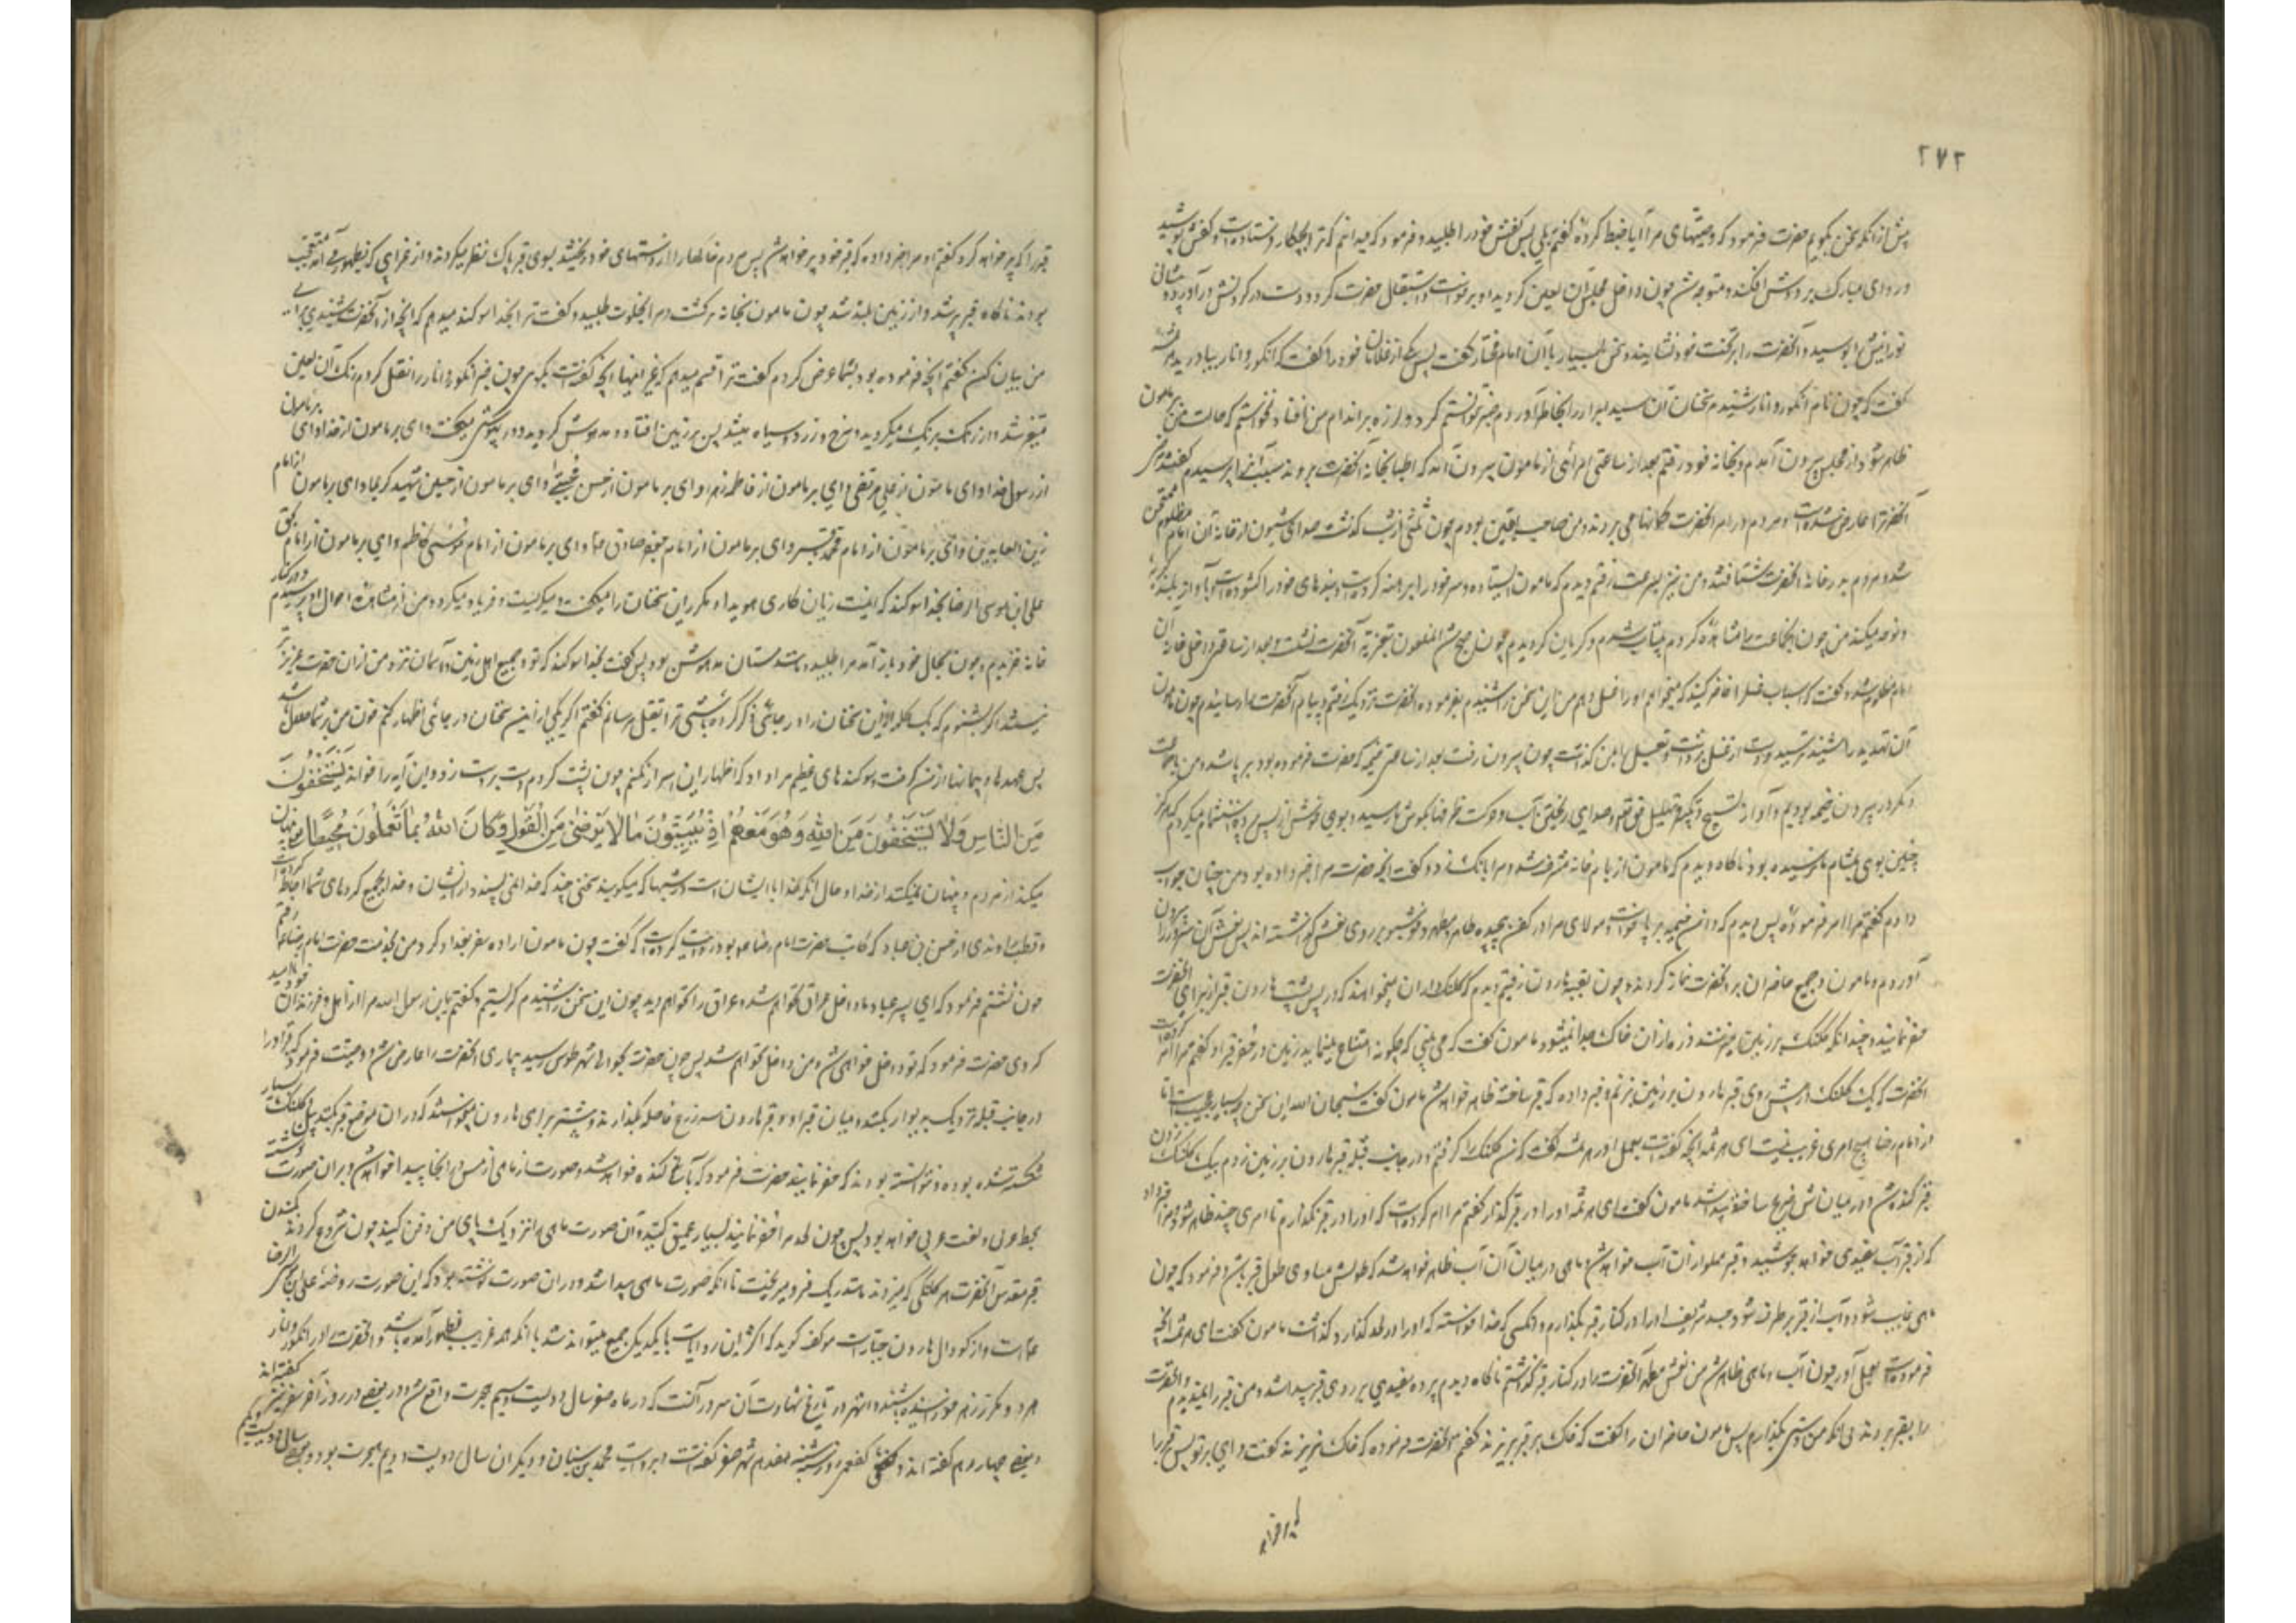 ۲۷۲
پیش از آنکه سخن بگویم حضرت فرمود که وصیتهای مرا آیا ضبط کردهٔ گفتم بلی پس کفش خود را طلبید و فرمود که میدانم که ترا بچکار فرستاده است و کفش پوشید
و ردای مبارک بر دوش افکند و متوجه شد چون داخل مجلس آن لعین گردید او برخواست و استقبال حضرت کرد و دست در گردنش درآورد و پیشانی
نورانیش ابوسید و آنحضرت را بر تخت خود نشانید و سخن بسیار با آن امام مختار گفت پس یکی از غلامان خود را گفت که انگور و انار بیاورید هرثمه
گفت که چون نام انگور و انار شنیدم سخنان آن سید ابرار را بخاطر آوردم صبر نتوانستم کرد و لرزه بر اندام من افتاد نخواستم که حالت من بر مامون
ظاهر شود از مجلس بیرون آمدم و بخانهٔ خود رفتم بعد از ساعتی امرائی از مامون بیرون آمد که اطبا بخانهٔ آنحضرت بروند سبب آنرا پرسیدم گفتند مرضی
آنحضرترا عارض شده است و مردم در امر آنحضرت گمانها می بردند و من صاحب یقین بودم چون ثلثی از شب گذشت صدای شیون از خانهٔ آن امام مظلوم ممتحن
شد و مردم بدر خانهٔ آنحضرت شتافتند و من نیز بسرعت رفتم دیدم که مامون ایستاده و سر خود را برهنه کرده است و بندهای خود را گشوده است و بآواز بلند گریه
و نوحه میکند من چون آنجماعت را مشاهده کردم بیتاب شدم و گریان گردیدم چون صبح شد آنملعون بتعزیهٔ آنحضرت نشست و بعد از ساعتی داخل خانهٔ آن
امام مظلوم شد و گفت که اسباب غسل را حاضر کنید که میخواهم او را غسل دهم من این سخن را شنیدم بفرمودهٔ آنحضرت نزدیک رفتم و پیام آنحضرت را رسانیدم چون مامون
آن تهدید را شنید ترسید و دست از غسل برداشت و تغسیل را بمن گذاشت چون بیرون رفت بعد از ساعتی خیمهٔ که حضرت فرموده بود برپا شد و من با جماعت
دیگر در بیرون خیمه بودیم و آواز تسبیح و تکبیر و تهلیل حق تعالی و صدای ریختن آب و حرکت ظرفها بگوش ما رسید و بوی خوش از پس پرده استشمام میکردم که هرگز
چنین بوی بمشام ما نرسیده بود ناگاه دیدم که مامون از بام خانه مشرف شد و مرا بانگ زد و گفت آنچه حضرت مرا خبر داده بود و من چنان جواب
دادم گفتم مرا امر فرمودهٔ پس دیدم که دامن خیمه برپا خواست مولای مرا در کفن پیچیده طاهر و مطهر و خوشبو بر روی نعش گذاشته اند پس نعش آن سرور را بیرون
آوردم و مامون و جمیع حاضران بر آنحضرت نماز کردند و چون بقبهٔ هارون رفتیم دیدم که کلنگداران میخواهند که در پس پشت هارون قبر از برای آنحضرت
حفر نمایند و چندانکه کلنگ بر زمین میزنند ذره از آن خاک جدا نمیشود مامون گفت که می بینی که چگونه امتناع مینماید زمین از حفر قبر او گفتم مرا امر کرده است
آنحضرت که یک کلنگ در پیش روی قبر هارون بر زمین بزنم و خبر داده که قبر ساخته ظاهر خواهد شد مامون گفت سبحان الله این سخن بسیار عجیب است اما
از امام رضا هیچ امری غریب نیست ای هرثمه آنچه گفته است بعمل آور هرثمه گفت که من کلنگ را گرفتم و در جانب قبلهٔ قبر هارون بر زمین زدم بیک کلنگ زدن
قبر کنده شد و در میانش ضریح ساخته پیدا شد مامون گفت ای هرثمه او را در قبر گذار گفتم مرا امر کرده است که او را در قبر نگذارم تا امری چند ظاهر شود و مرا خبر داد
که از قبر آب سفیدی خواهد جوشید و قبر مملو از آن آب خواهد شد و ماهی در میان آن آب ظاهر خواهد شد که طولش مساوی طول قبر باشد و فرمود که چون
ماهی غایب شود و آب از قبر برطرف شود جسد شریف او را در کنار قبر بگذارم و آنکسی که خدا خواسته که او را در لحد گذارد گذاشت مامون گفت ای هرثمه آنچه
فرموده است بعمل آور چون آب و ماهی ظاهر شد من نعش مطهر آنحضرت را در کنار قبر گذاشتم ناگاه دیدم پردهٔ سفیدی بر روی قبر پیدا شد و من قبر را نمیدیدم و آنحضرت
را بقبر بردند بی آنکه من دستی بگذارم پس مامون حاضران را گفت که خاک بر قبر بریزند گفتم آنحضرت فرموده که خاک نریزند گفت وای بر تو پس قبر را
قبر را که پر خواهد کرد گفتم او مرا خبر داده که قبر خود پر خواهد شد پس مردم خاکها را از دستهای خود ریختند و بسوی قبر پاک نظر میکردند و از غرایبی که بظهور می آمد متعجب
بودند ناگاه قبر پر شد و از زمین بلند شد چون مامون بخانه برگشت و مرا بخلوت طلبید و گفت ترا بخدا سوگند میدهم که آنچه از آنحضرت شنیدی برای
من بیان کن گفتم آنچه فرموده بود بشما عرض کردم گفت ترا قسم میدهم که غیر اینها آنچه گفته است بگوی چون خبر انگور و انار را نقل کردم رنگ آن لعین
متغیر شد و از رنگ برنگ میگردید و سرخ و زرد و سیاه میشد پس بر زمین افتاد و مدهوش گردید و در بیهوشی میگفت وای بر مامون از خدا وای بر مامون
از رسول خدا وای مامون از علی مرتضی وای بر مامون از فاطمه زهرا وای بر مامون از حسن مجتبی وای بر مامون از حسین شهید کربلا وای بر مامون از امام
زین العابدین وای بر مامون از امام محمد باقر وای بر مامون از امام جعفر صادق وای بر مامون از امام موسی کاظم وای بر مامون از امام بحق
علی ابن موسی الرضا بخدا سوگند که اینست زیان کاری هویدا و مکرر این سخنان را میگفت و میگریست و فریاد میکرد و من از مشاهدهٔ احوال او ترسیدم و در کنار
خانه خزیدم و چون بحال خود باز آمد مرا طلبید و مانند مستان مدهوش بود پس گفت بخدا سوگند که تو و جمیع اهل زمین و آسمان نزد من از آن حضرت عزیزتر
نیستند اگر بشنوم که یک کلمه از این سخنان را در جائی ذکر کرده باشی ترا بقتل رسانم گفتم اگر یکی از این سخنان در جائی اظهار کنم خون من بر شما حلال باشد
پس عهدها و پیمانها از من گرفت و سوگندهای عظیم مرا داد که اظهار این اسرار نکنم چون پشت کردم دست بر دست زد و این آیه را خواند یَسْتَخْفُونَ
مِنَ النَّاسِ وَلَا یَسْتَخْفُونَ مِنَ اللهِ وَهُوَ مَعَهُمْ اِذْ یُبَیِّتُونَ مَا لَا یَرْضٰی مِنَ الْقَوْلِ وَکَانَ اللهُ بِمَا تَعْمَلُونَ مُحِیطًا یعنی پنهان
میکنند از مردم و پنهان نمیکنند از خدا و حال آنکه خدا با ایشان است در شبها که میگویند سخنی چند که خدا نمی پسندد از ایشان و خدا بجمیع کردهای شما احاطه کرده است
و قطب راوندی از حسن بن عباد که کاتب حضرت امام رضا بود روایت کرده است که گفت چون مامون ارادهٔ سفر بغداد کرد من بخدمت حضرت امام رضا رفتم
چون نشستم فرمود که ای پسر عباد ما داخل عراق نخواهیم شد و عراق را نخواهم دید چون این سخن را شنیدم گریستم و گفتم یابن رسول الله مرا از اهل و فرزندان خود ناامید
کردی حضرت فرمود که تو داخل خواهی شد و من داخل نخواهم شد پس چون حضرت بحوالی شهر طوس رسید بیماری آنحضرت را عارض شد و وصیت فرمود که قبر او را
در جانب قبله نزدیک بدیوار بکنند و میان قبر او و قبر هارون سه ذرع فاصله بگذارند و پیشتر برای هارون میخواستند که در آن موضع قبر بکنند بیل و کلنگ بسیار
شکسته شده بود و نتوانسته بودند که حفر نمایند حضرت فرمود که بآسانی کنده خواهد شد و صورت ماهی از مس در آنجا پیدا خواهد شد و بر آن صورت نوشته
بخط عبری و لغت عبری خواهد بود پس چون لحد مرا حفر نمایند بسیار عمیق کنید و آن صورت ماهی را نزدیک پای من دفن کنید چون شروع کردند بکندن
قبر مقدس آنحضرت هر کلنگی که میزدند مانند ریگ فرو میریخت تا آنکه صورت ماهی پیدا شد و در آن صورت نوشته بود که این صورت روضهٔ علی بن موسی الرضا
است و آن گودال هارون جبار است مولف گوید که اکثر این روایات با یکدیگر جمع میتواند شد با آنکه همه غرایب بظهور آمده باشد و آنحضرت را در انگور و انار
هر دو مکرر زهر خورانیده باشند و اشهر در تاریخ شهادت آن سرور آنست که در ماه صفر سال دویست و سیم هجرت واقع شد و بعضی در روز آخر صفر نیز گفته اند
و بعضی چهاردهم گفته اند و کفعمی روز سه شنبه هفدهم شهر صفر گفته است و بروایت محمد بن سنان و دیگران سال دویست و دویم هجرت بود و بعضی سال دویست و یکم